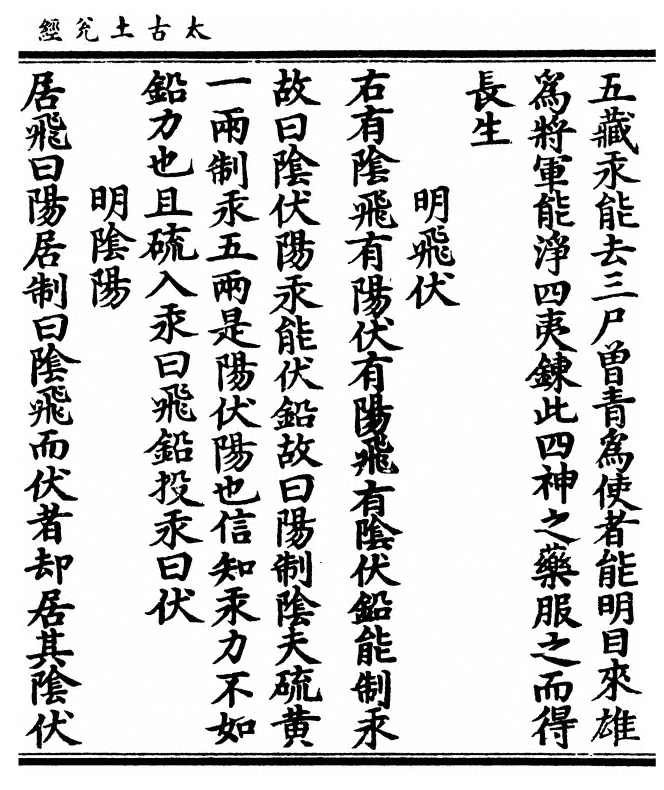 太古土兊經
五藏汞能去三尸曾青爲使者能明目來雄
爲將軍能淨四夷鍊此四神之藥服之而得
長生
明飛伏
右有陰飛有陽伏有陽飛有陰伏鉛能制汞
故曰陰伏陽汞能伏鉛故曰陽制陰夫硫黄
一兩制汞五兩是陽伏陽也信知汞力不如
鉛力也且硫入汞曰飛鉛投汞曰伏
明陰陽
居飛曰陽居制曰陰飛而伏者却居其陰伏